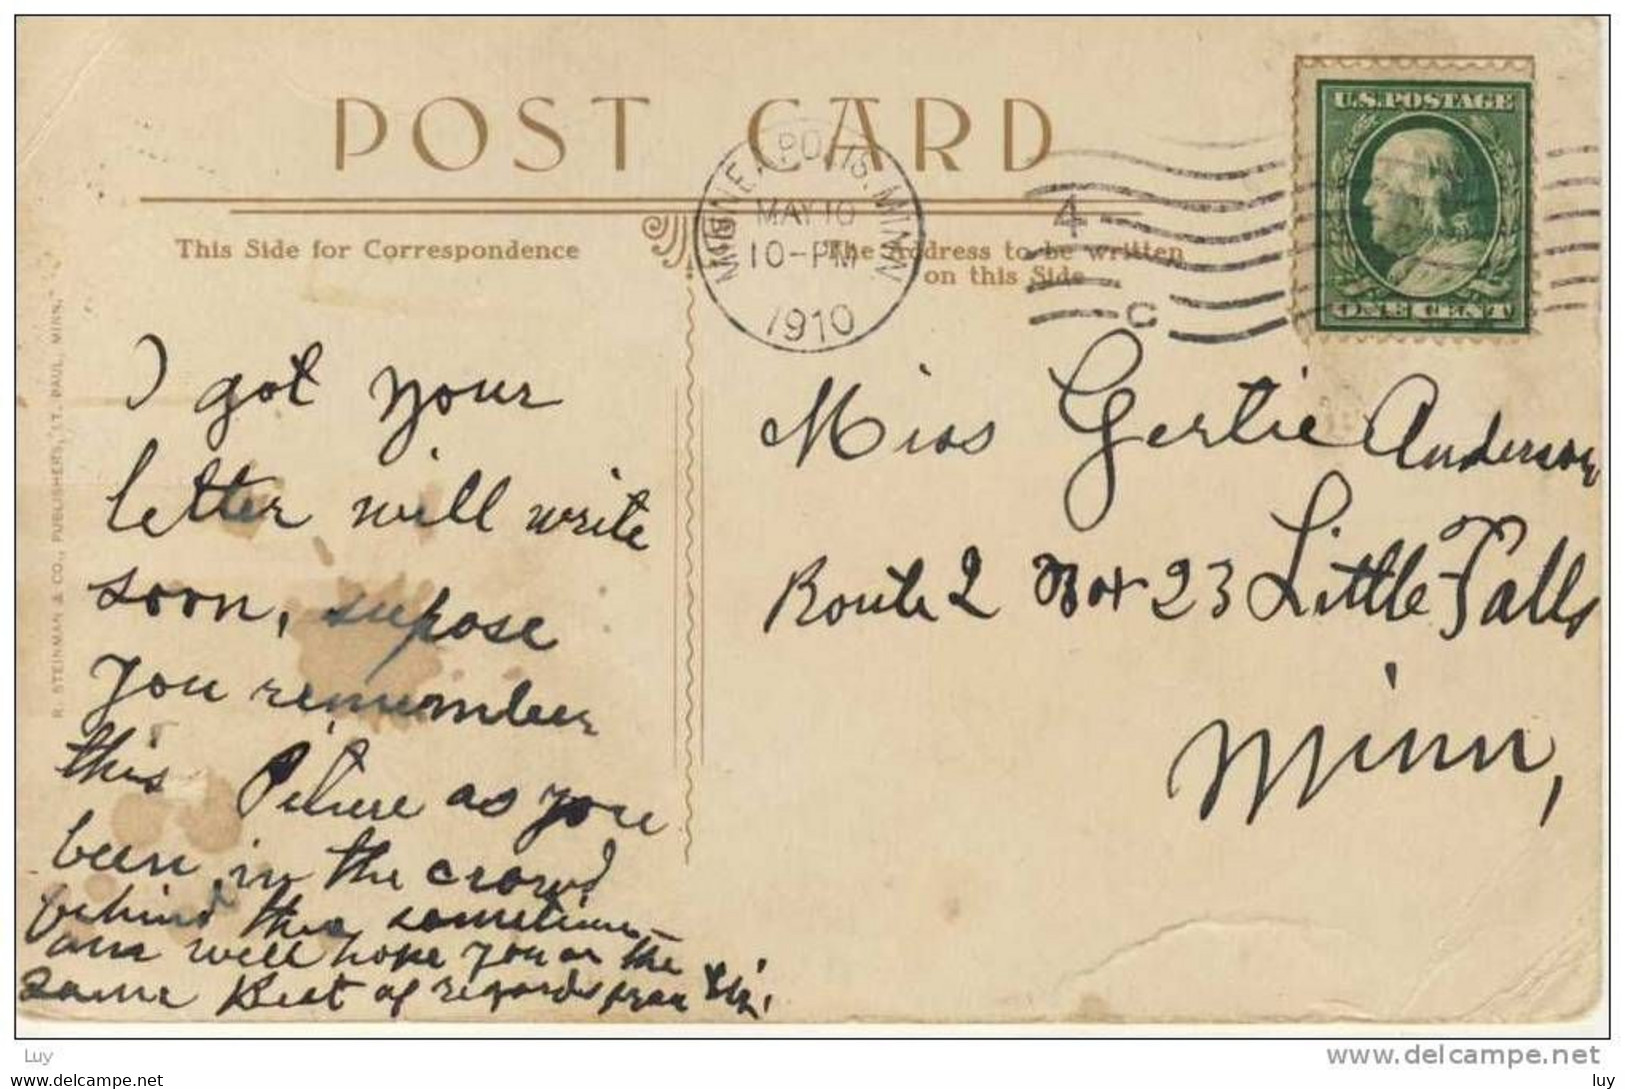 POST CARD
U.S. POSTAGE
ONE CENT
MINNEAPOLIS. MINN
MAY 10
10-PM
1910
4
C
This Side for Correspondence
The Address to be written
on this Side
R. STEINMAN & CO., PUBLISHERS, ST. PAUL, MINN.
I got your
letter will write
soon, supose
you remember
this Picture as you
been in the crowd
behind this sometimes
am well hope you are the
same Best of regards from
Miss Gertie Anderson
Route 2 Box 23 Little Falls
Minn,
Luy
www.delcampe.net
luy